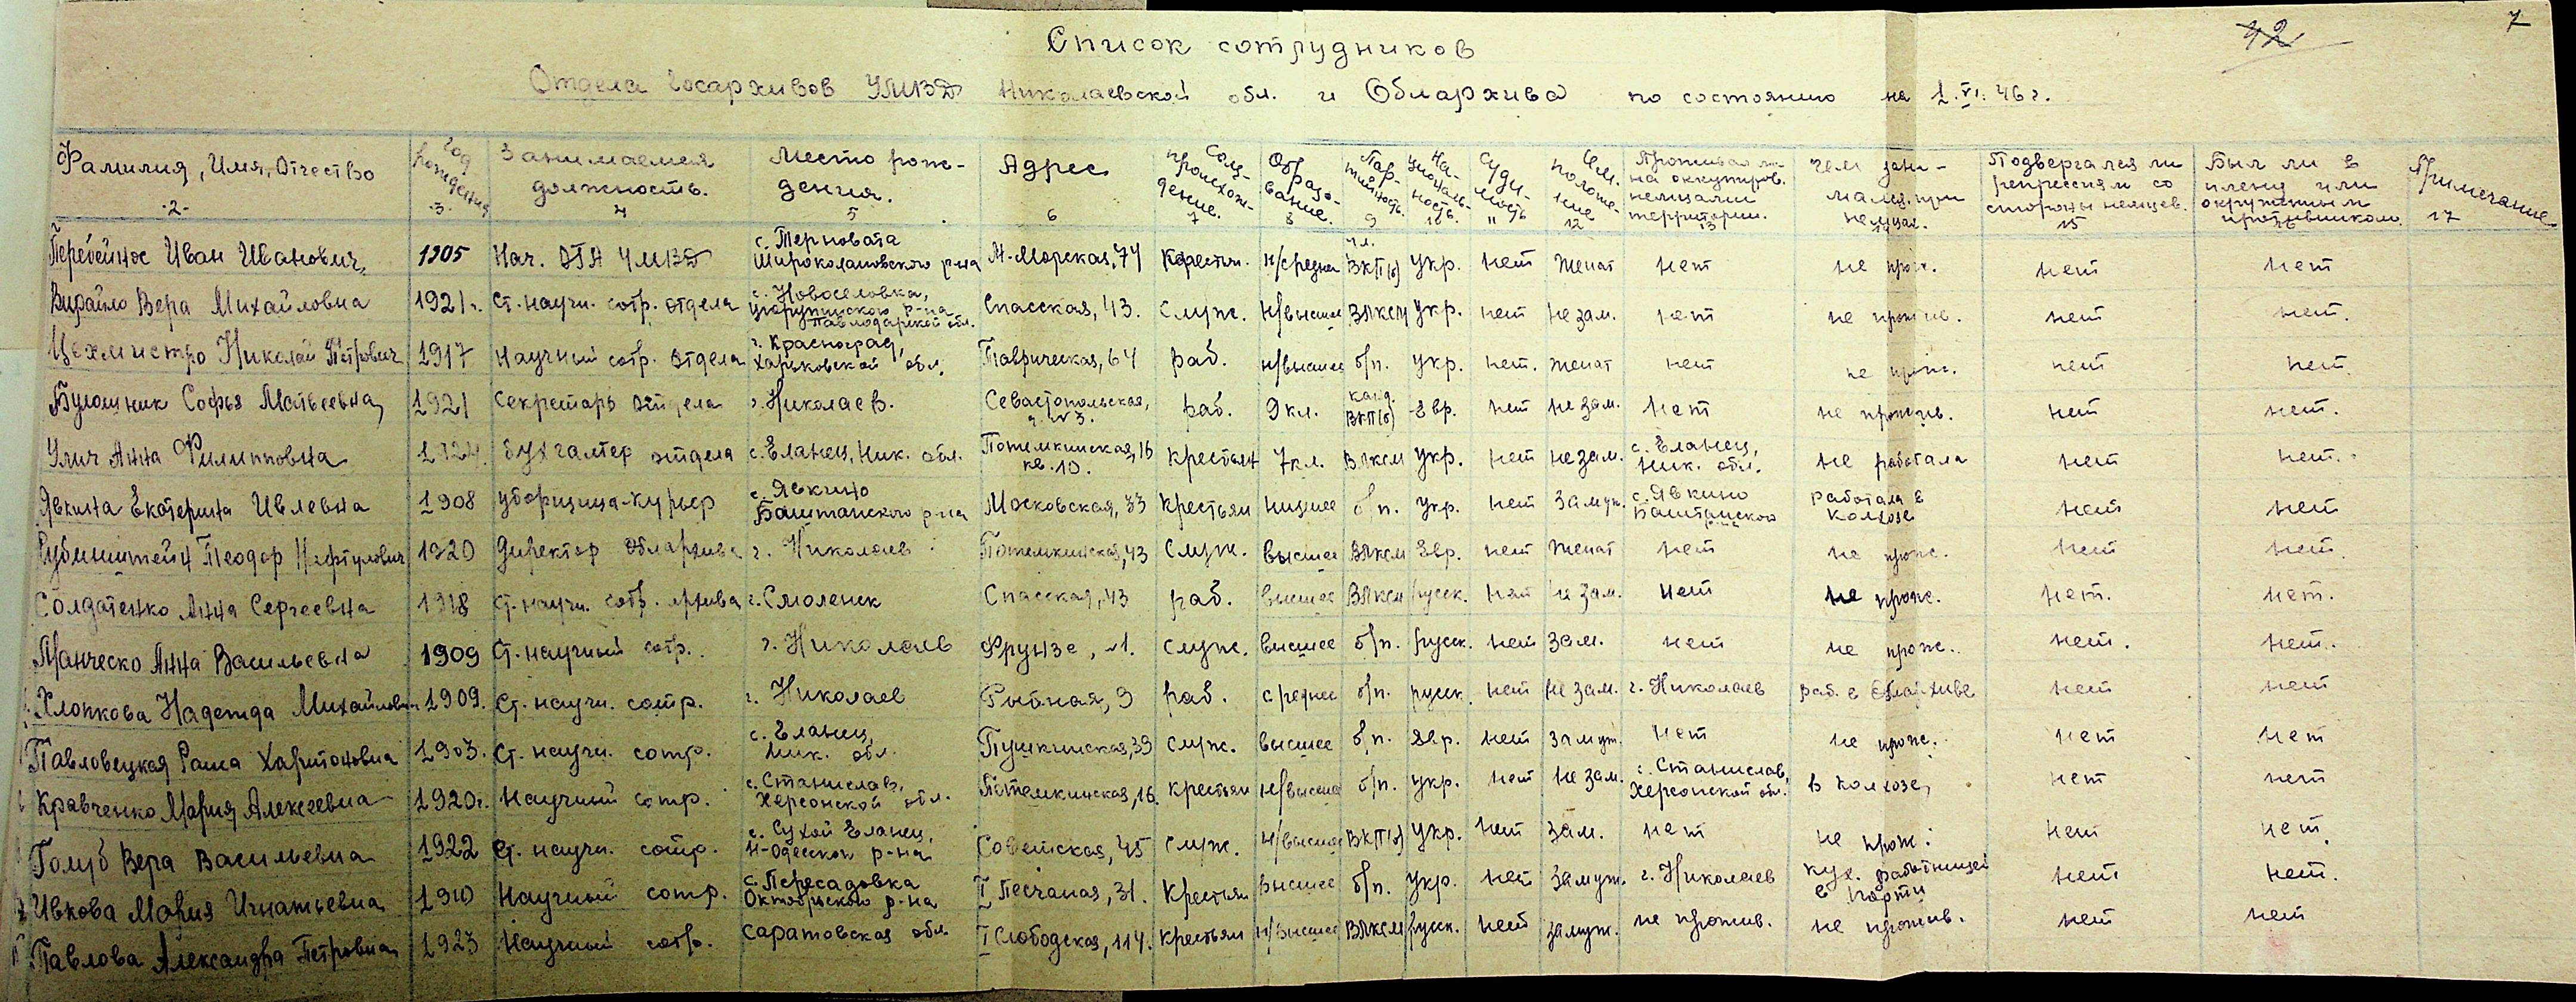 7
42
Список сотрудников
Отдела Госархивов УМВД Николаевской обл. и Облархива по состоянию на 1.VI.46 г.
Фамилия, Имя, Отчество | Год рождения | Занимаемая должность. | Место рождения. | Адрес | Соц. происхождение. | Образование. | Партийность. | Национальность. | Судимость | Сем. положение | Проживал ли на оккупиров. немцами территории. | Чем занимался при немцах. | Подвергался ли репрессиям со стороны немцев. | Был ли в плену или окружении противником | Примечание
-2- | -3- | 4 | 5 | 6 | 7 | 8 | 9 | 10 | 11 | 12 | 13 | 14 | 15 | 16 | 17
Перебейнос Иван Иванович | 1905 | Нач. ОГА УМВД | с. Терновата Широколановского р-на | М-Морская, 74 | Крестьян. | н/средн | чл. ВКП(б) | укр. | нет | женат | нет | не прож. | нет | нет
Вера Михайловна | 1921 г. | Ст. научн. сотр. отдела | с. Новоселовка, Цюрупинского р-на Павлодарской обл. | Спасская, 43. | Служ. | н/высшее | ВЛКСМ | укр. | нет | не зам. | нет | не прожив. | нет | нет.
Цехмистро Николай Петрович | 1917 | Научный сотр. отдела | г. Красноград, Харьковской обл. | Таврическая, 64 | раб. | н/высшее | б/п. | укр. | нет. | женат | нет | не прож. | нет | нет
Софья Матвеевна | 1921 | Секретарь отдела | г. Николаев. | Севастопольская, № 3. | раб. | 9 кл. | канд. ВКП(б) | Евр. | нет | не зам. | нет | не прожив. | нет | нет.
Улич Анна Филипповна | 1924. | Бухгалтер отдела | с. Еланец, Ник. обл. | Потемкинская, 16 кв. 10. | крестьян | 7 кл. | ВЛКСМ | укр. | нет | не зам. | с. Еланец, Ник. обл. | не работала | нет | нет.
Явкина Екатерина Ивлевна | 1908 | уборщица-курьер | с. Явкино Баштанского р-на | Московская, 33 | Крестьян | низшее | б/п. | укр. | нет | замуж. | с. Явкино Баштанского | работала в колхозе | нет | нет
Рубинштейн Теодор Нафтулович | 1920 | Директор Облархива | г. Николаев | Потемкинская, 43 | Служ. | высшее | ВЛКСМ | Евр. | нет | женат | нет | не прож. | нет | нет.
Солдатенко Анна Сергеевна | 1918 | Ст. научн. сотр. архива | г. Смоленск | Спасская, 43 | раб. | высшее | ВЛКСМ | русск. | нет | не зам. | нет | не прож. | нет. | нет.
Анна Васильевна | 1909 | Ст. научный сотр. | г. Николаев | Фрунзе, №1. | Служ. | высшее | б/п. | русск. | нет | зам. | нет | не прож. | нет. | нет.
Хлопкова Надежда Михайловн | 1909. | Ст. научн. сотр. | г. Николаев | Рыбная, 9 | раб. | среднее | б/п. | русск. | нет | не зам. | г. Николаев | раб. в Облархиве | нет | нет
Павловецкая Раиса Харитоновна | 1903. | Ст. научн. сотр. | с. Еланец, Ник. обл. | Пушкинская, 39 | служ. | высшее | б/п. | Евр. | нет | замуж. | нет | не прож. | нет | нет
Кравченко Мария Алексеевна | 1920 г. | Научный сотр. | с. Станислав, Херсонской обл. | Потемкинская, 16. | крестьян | н/высшее | б/п. | укр. | нет | не зам. | с. Станислав, Херсонской обл. | в колхозе, | нет | нет
Голуб Вера Васильевна | 1922 | Ст. научн. сотр. | с. Сухой Еланец, Н-Одесской р-на | Советская, 45 | служ. | н/высшее | ВКП(б) | укр. | нет | зам. | нет | не прож. | нет | нет.
Ивкова Мария Игнатьевна | 1910 | Научный сотр. | с. Пересадовка Октябрьского р-на | I Песчаная, 31. | Крестьян | высшее | б/п. | укр. | нет | замуж. | г. Николаев | кух. работницей в порту | нет | нет.
Павлова Александра Петровна | 1923 | Научный сотр. | Саратовская обл | I Слободская, 114. | крестьян | н/высшее | ВЛКСМ | русск. | нет | замуж. | не прожив. | не прожив. | нет | нет